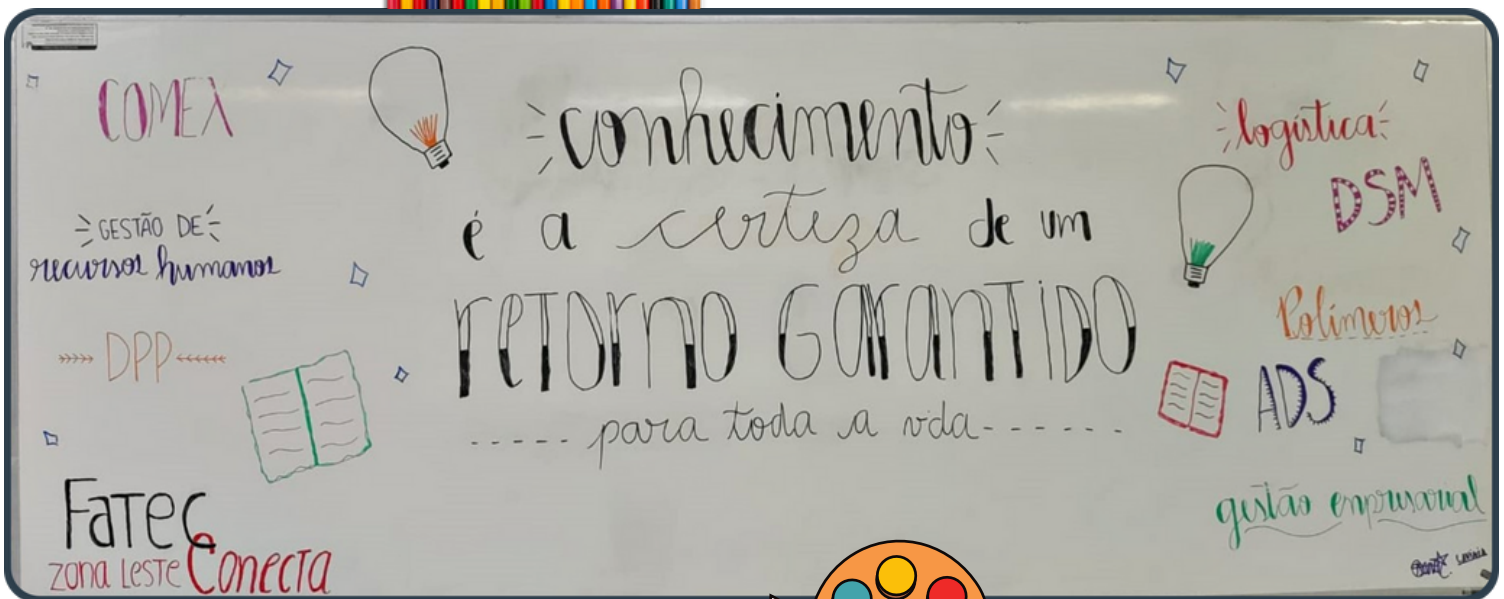 COMEX
GESTÃO DE
recursos humanos
DPP
Fatec
zona Leste Conecta
conhecimento
é a certeza de um
retorno garantido
para toda a vida
logística
DSM
Polímeros
ADS
gestão enprusarial